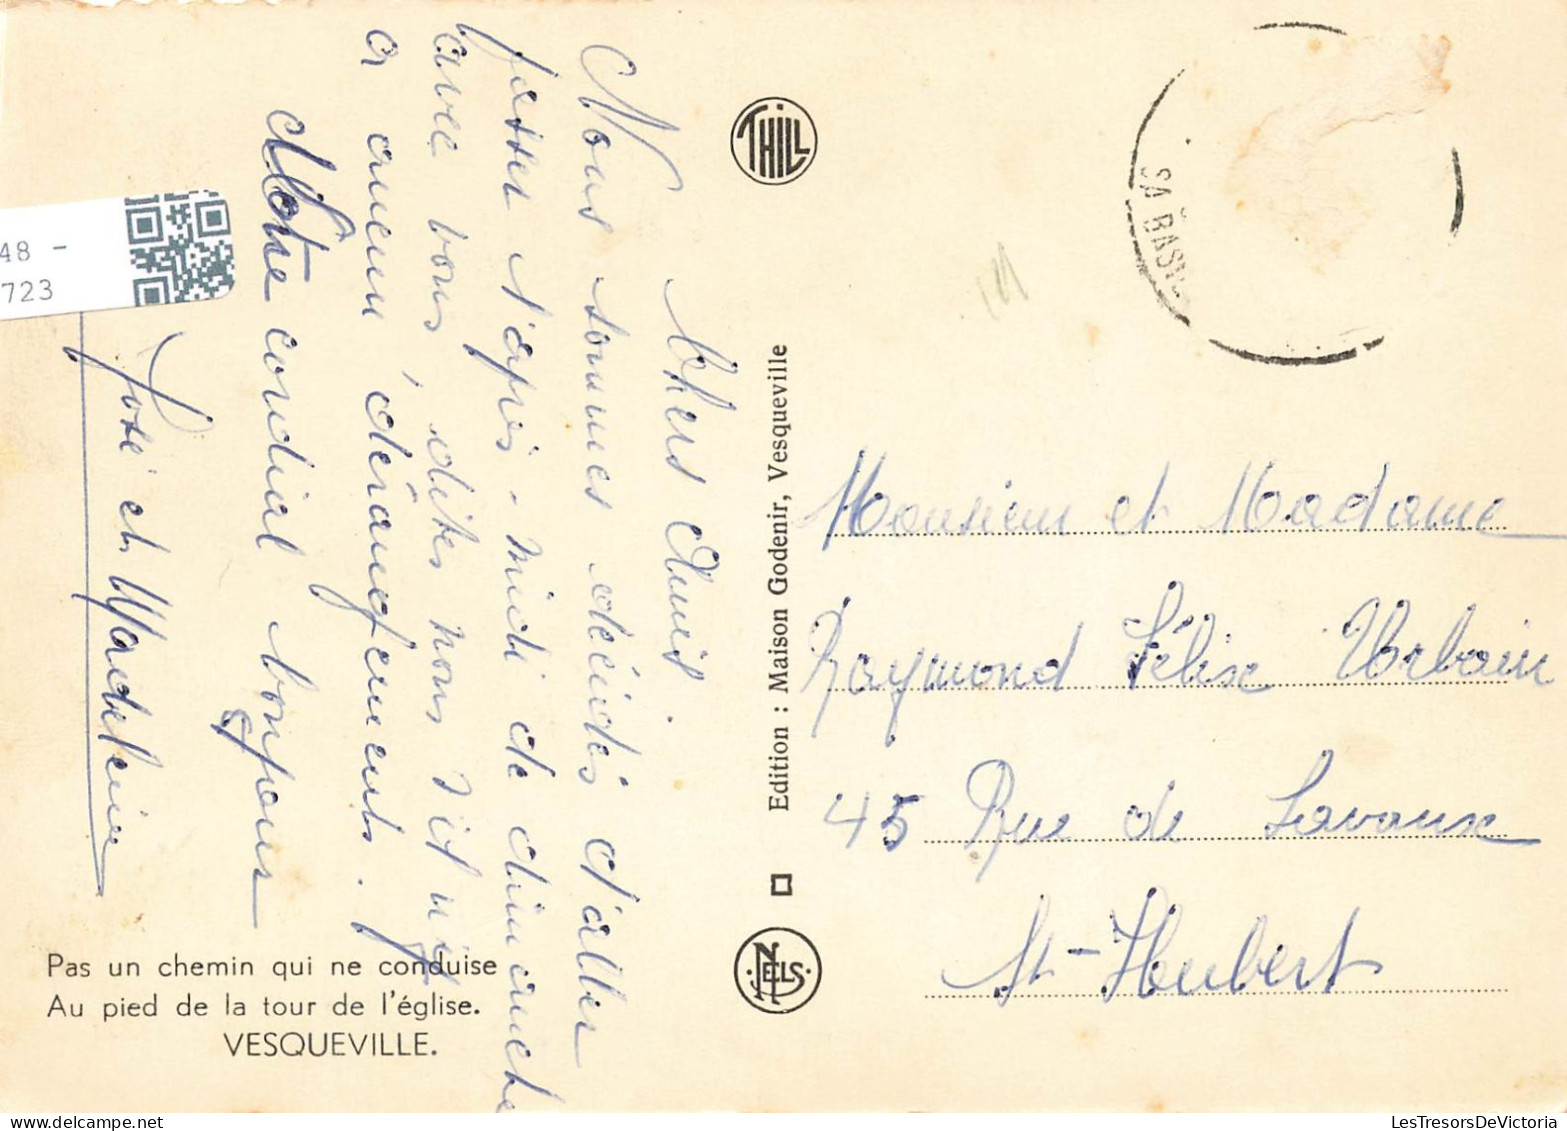 Chers Amis.
Nous sommes décidés d'aller
passer l'après-midi de dimanche
avec vous, dites nous s'il n'y
a aucun dérangements.
Notre cordial bonjour
José et Madeleine
Pas un chemin qui ne conduise
Au pied de la tour de l'église.
VESQUEVILLE.
48 -
723
THILL
Edition : Maison Godenir, Vesqueville
NELS
Monsieur et Madame
Raymond Félix Urbain
45 Rue de Lavaux
St-Hubert
LesTresorsDeVictoria